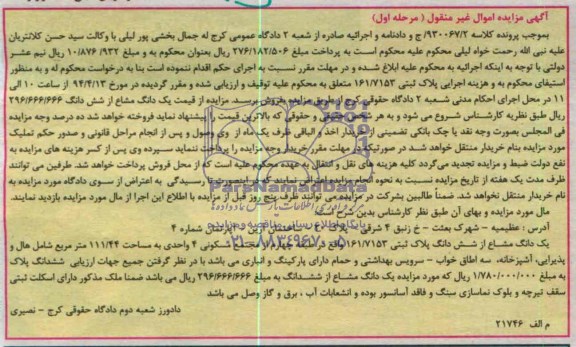 آگهی مزایده اموال غیر منقول ( مرحله اول)
بموجب پرونده کلاسه ۹۳۰۰۶۷/۲/ ج و دادنامه و اجرائیه صادره از شعبه ۲ دادگاه عمومی کرج له جمال بخشی پور لیلی با وکالت سید حسن کلانتریان
علیه نبی الله رحمت خواه لیلی محکوم علیه محکوم است به پرداخت مبلغ ۲۷۶/۱۸۲/۵۰۶ ریال بعنوان محکوم به و مبلغ ۱۰/۸۷۶/۹۳۲ ریال نیم عشر
دولتی با توجه به اینکه اجرائیه به محکوم علیه ابلاغ شده و در مهلت مقرر نسبت به اجرای حکم اقدام ننموده است بنا به درخواست محکوم له و به منظور
استیفای محکوم به و هزینه اجرایی پلاک ثبتی ۱۶۱/۷۱۵۳ متعلق به محکوم علیه توقیف و ارزیابی شده و مقرر گردیده در مورخ ۹۴/۴/۱۳ از ساعت ۱۰ الی
۱۱ در محل اجرای احکام مدنی شعبه ۲ دادگاه حقوقی کرج از طریق مزایده بفروش برسد مزایده از قیمت یک دانگ مشاع از شش دانگ ۲۹۶/۶۶۶/۶۶۶
ریال طبق نظریه کارشناس شروع می شود و به هر شخص حقیقی و حقوقی که بالاترین قیمت را پیشنهاد نماید فروخته خواهد شد ده درصد وجه مزایده
فی المجلس بصورت وجه نقد یا چک بانکی تضمینی از خریدار اخذ و الباقی ظرف یک ماه از وی وصول و پس از انجام مراحل قانونی و صدور حکم تملیک
مورد مزایده بنام خریدار منتقل خواهد شد در صورتیکه در مهلت مقرر خریدار وجه مزایده را پرداخت ننماید سپرده وی پس از کسر هزینه های مزایده به
نفع دولت ضبط و مزایده تجدید می‌گردد کلیه هزینه های نقل و انتقال به عهده محکوم علیه است که از محل فروش پرداخت خواهد شد. طرفین می توانند
ظرف مدت یک هفته از تاریخ مزایده نسبت به نحوه انجام مزایده اعتراض نمایند که در اینصورت تا رسیدگی به اعتراض از سوی دادگاه مورد مزایده به
نام خریدار منتقل نخواهد شد. ضمناً طالبین بشرکت در مزایده می توانند ظرف پنج روز قبل از مزایده با اطلاع این اجرا از مال مورد مزایده بازدید نمایند.
مال مورد مزایده و بهای آن طبق نظر کارشناس بدین شرح است:
آدرس : عظیمیه - شهرک بعثت - خ زنبق ۴ شرقی - پلاک ۴۰ - شماره ۴
یک دانگ مشاع از شش دانگ پلاک ثبتی ۱۶۱/۷۱۵۳ واقع در طبقه چهارم آپارتمان مسکونی ۴ واحدی به مساحت ۱۱۱/۴۴ متر مربع شامل هال و
پذیرایی، آشپزخانه، سه اطاق خواب - سرویس بهداشتی و حمام دارای پارکینگ و انباری می باشد با در نظر گرفتن جمیع جهات ارزیابی ششدانگ پلاک
به مبلغ ۱/۷۸۰/۰۰۰/۰۰۰ ریال که مورد مزایده یک دانگ مشاع از ششدانگ به مبلغ ۲۹۶/۶۶۶/۶۶۶ ریال می باشد ضمنا ملک مذکور دارای اسکلت ثبتی
سقف تیرچه و بلوک نماسازی سنگ و فاقد آسانسور بوده و انشعابات آب ، برق و گاز وصل می باشد
دادورز شعبه دوم دادگاه حقوقی کرج - نصیری
م الف ۲۱۷۴۶
ParsNamadData
۰۲۱-۸۸۳۴۹۶۷۰-۵